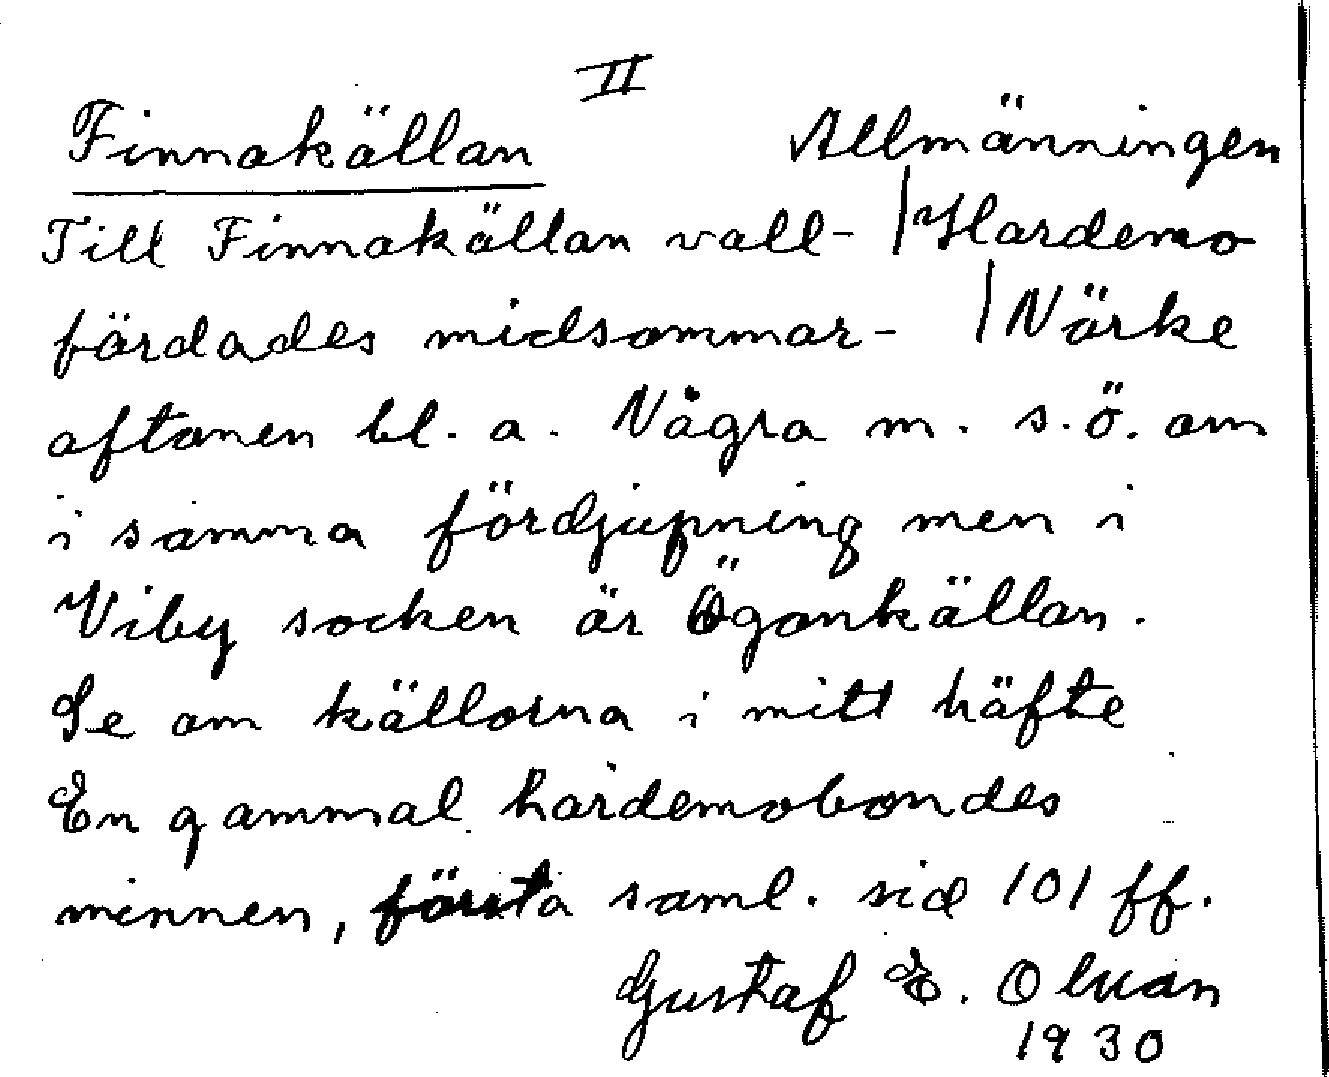 II
Finnakällan Allmänningen
Till Finnakällan vall- / Hardemo
färdades midsommar- / Närke
aftonen bl. a. Några m. s.ö. om
i samma fördjupning men i
Viby socken är Ögonkällan.
Se om källorna i mitt häfte
En gammal hardemobondes
minnen, första saml. sid 101 ff.
Gustaf E.
1930